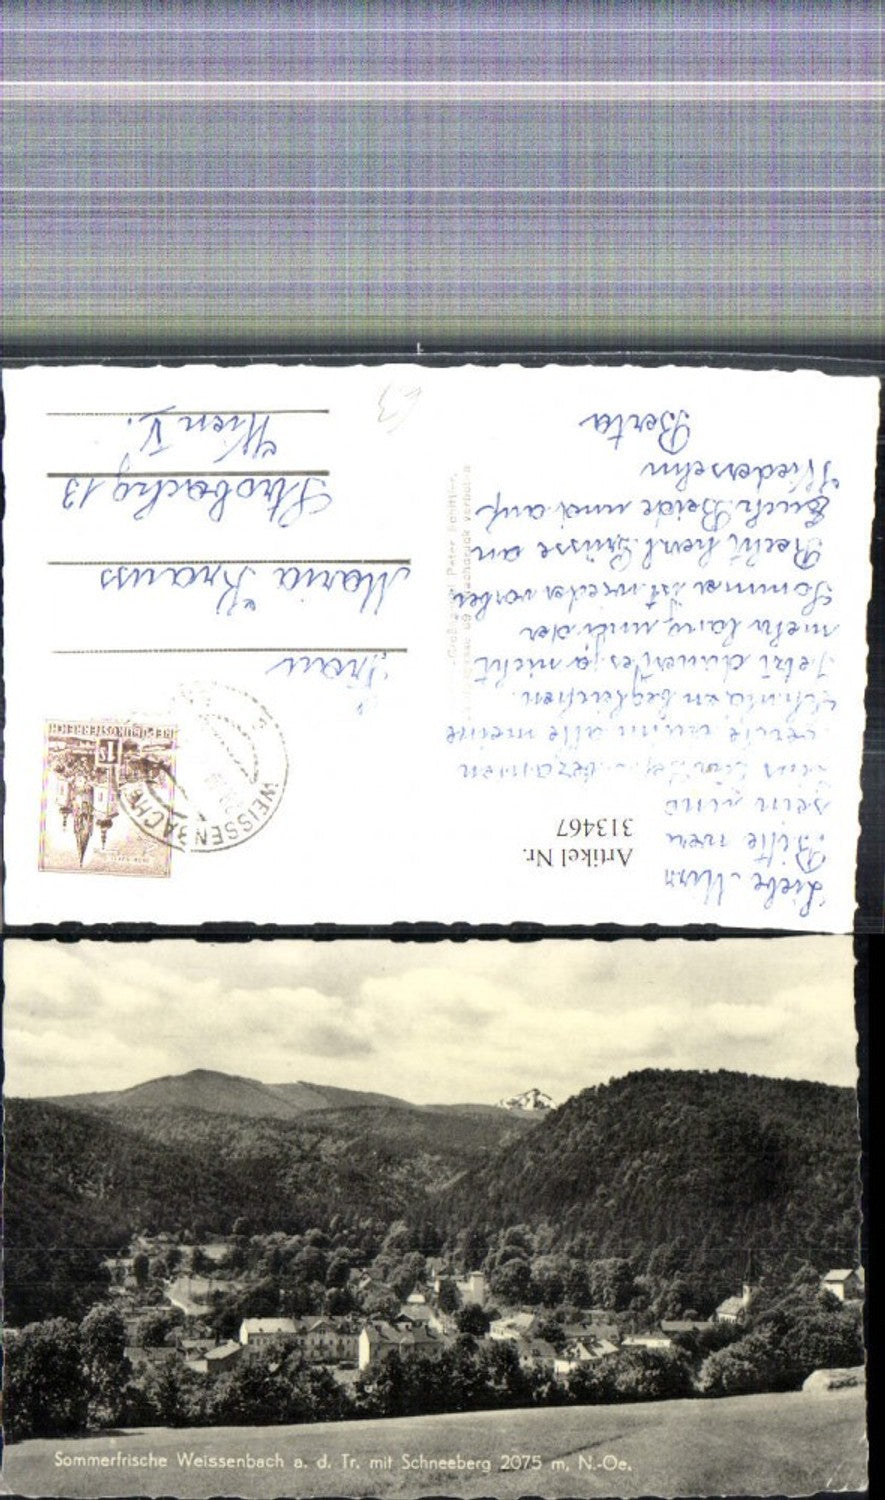 Liebe Mizzi
Bitte
sein und
alle meine
Schulden begleichen.
Jetzt dauert es ja nicht
mehr lang und der
Sommer ist wieder vorbei
Recht herzl. Grüsse an
Euch Beide und auf
Wiedersehn
Berta
Artikel Nr.
313467
Frau
Maria Krauss
Strobachg 13
Wien V.
63
WEISSENBACH
REPUBLIK ÖSTERREICH
1 S
Sommerfrische Weissenbach a. d. Tr. mit Schneeberg 2075 m, N.-Oe.